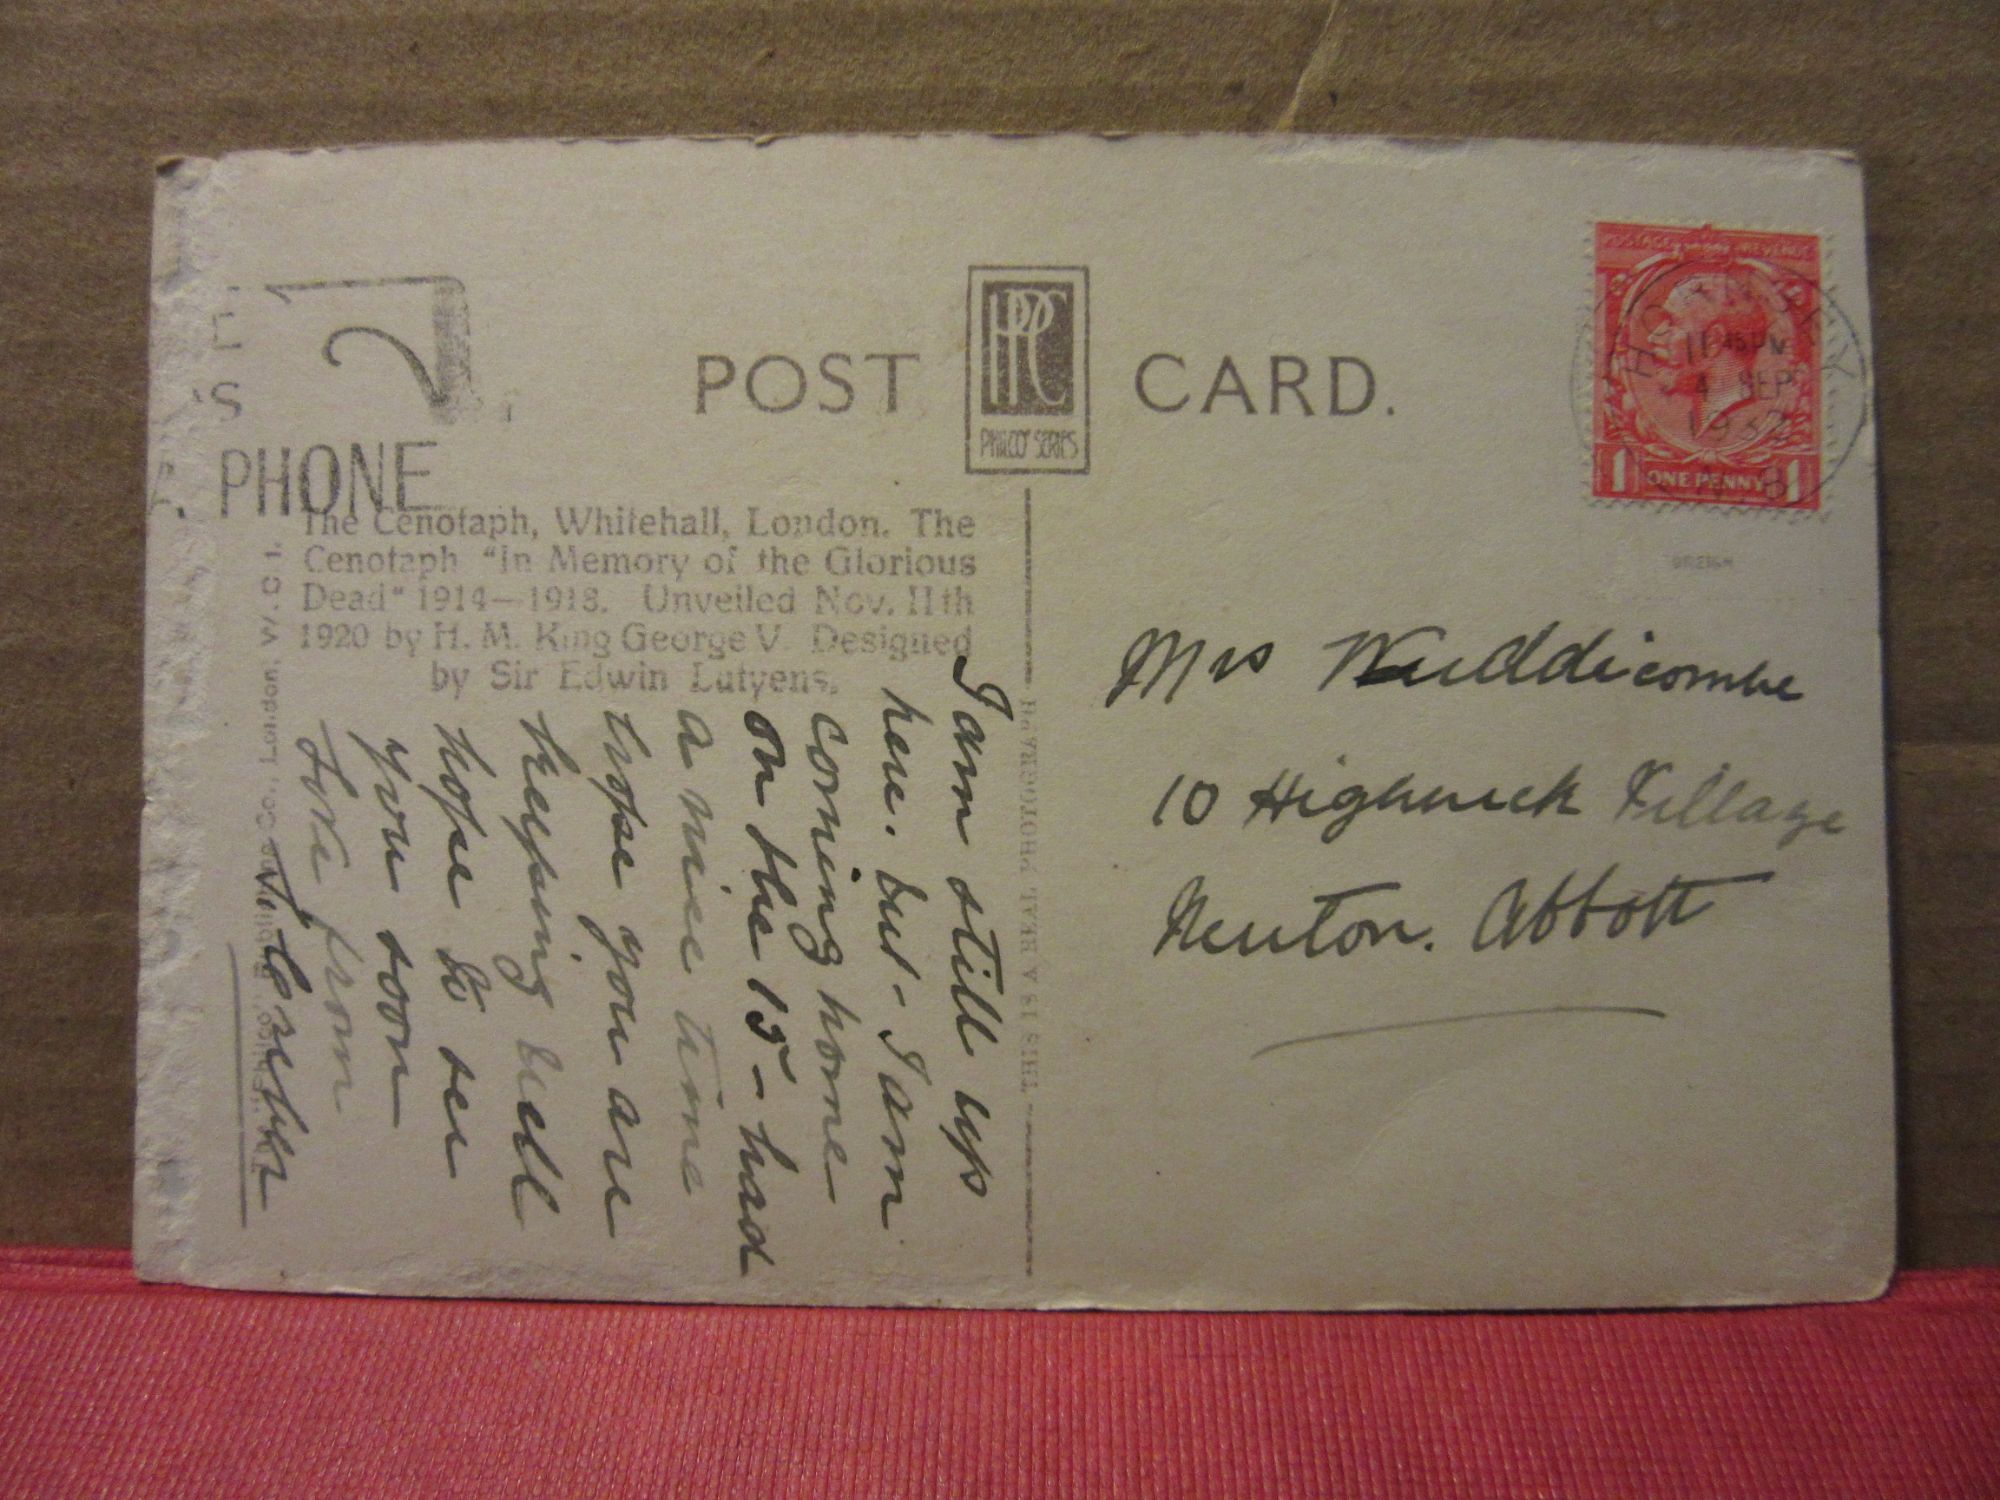 POST CARD.
RPPC
PHILCO SERIES
E
S
PHONE
The Cenotaph, Whitehall, London. The
Cenotaph "In Memory of the Glorious
Dead" 1914—1918. Unveiled Nov. 11th
1920 by H. M. King George V. Designed
by Sir Edwin Lutyens.
POSTAGE REVENUE
HORNSEY
11 45 PM
4 SEP
1932
N 8
1 ONE PENNY 1
THIS IS A REAL PHOTOGRAPH
London, W.C 1.
Mrs Widdicombe
10 Highwick Village
Newton. Abbott
I am still up
here. but - I am
coming home
on the 15 - had
a nice time
hope you are
keeping well
hope to see
you soon
love from